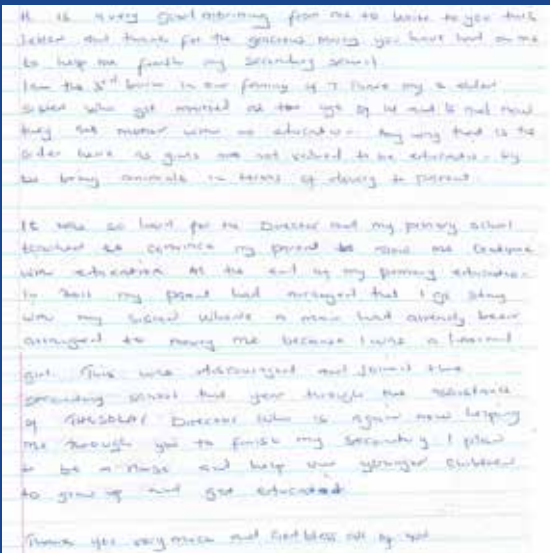 It is a very good morning from me to write to you this
letter and thank for the gracious mercy you have had on me
to help me finish my secondary school
I am the 3rd born in our family of 7 I have my 2 elder
sister who got married at the age of 14 and 15 and now
they are mother with no education. Any way that is the
order here as girls are not valued to be education. by
to bring animals in terms of dowry to parent.
It was so hard for the Director and my primary school
teacher to convince my parent to allow me continue
with education At the end of my primary education
In my parent had arranged that I go stay
with my sister where a man had already been
arranged to marry me because I was a learned
girl. This was discouraged and joined the
secondary school this year through the assistance
of Director who is again now helping
me through you to finish my secondary I plan
to be a nurse and help our younger children
to grow up and get educated
Thank you very much and God bless all of you